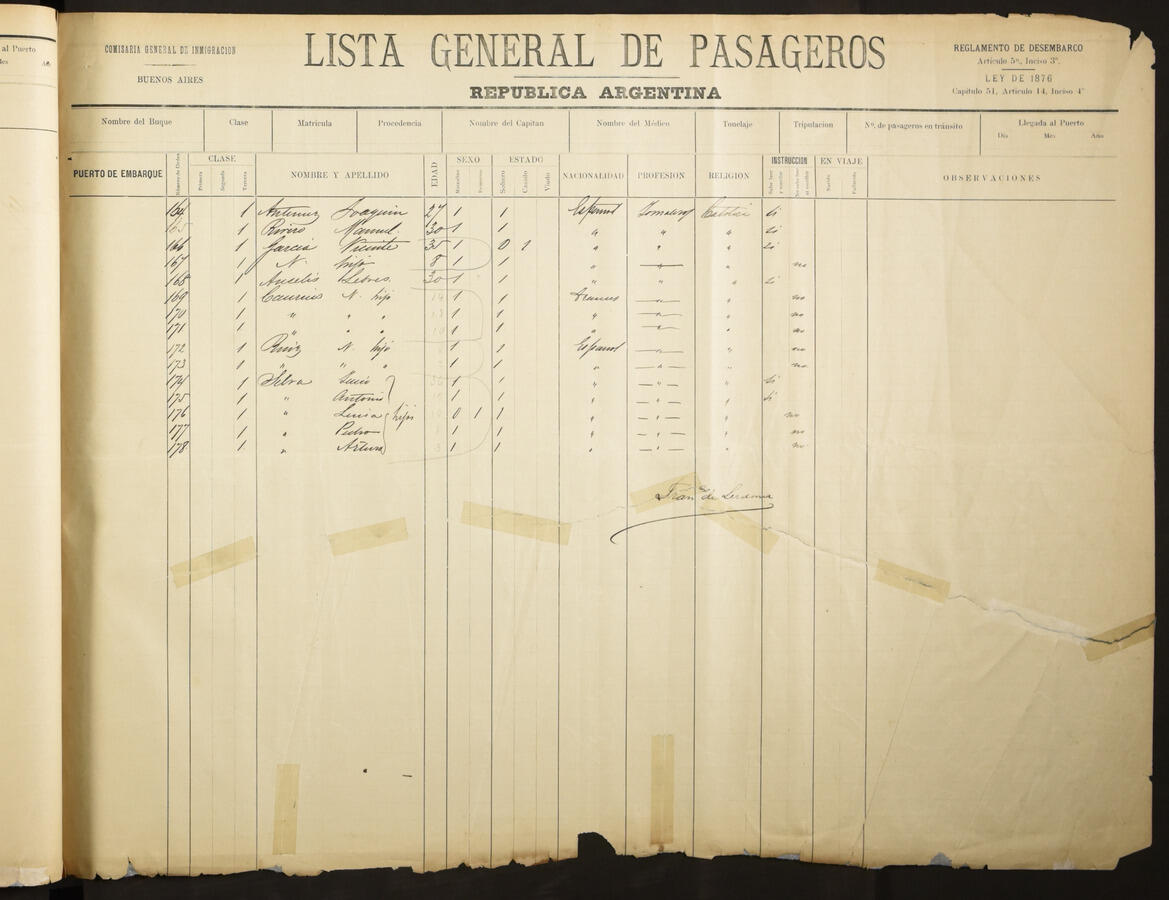 al Puerto
COMISARIA GENERAL DE INMIGRACION
BUENOS AIRES
LISTA GENERAL DE PASAGEROS
REPUBLICA ARGENTINA
REGLAMENTO DE DESEMBARCO
Artículo 5º, Inciso 3º.
LEY DE 1876
Capítulo 51, Artículo 14, Inciso 4º
Nombre del Buque Clase Matricula Procedencia Nombre del Capitan Nombre del Médico Tonelaje Tripulacion Nº. de pasageros en tránsito Llegada al Puerto
Dia Mes Año
PUERTO DE EMBARQUE Número de Orden CLASE Primera Segunda Tercera NOMBRE Y APELLIDO EDAD SEXO Masculino Femenino ESTADO Soltero Casado Viudo NACIONALIDAD PROFESION RELIGION INSTRUCCION EN VIAJE OBSERVACIONES
164 1 Joaquin 27 1 1 Español si
165 1 Rivero Manuel 30 1 1 " " " si
166 1 Garcia Vicente 35 1 0 1 " " " si
167 1 N. hijo 8 1 1 " — " no
168 1 30 1 1 " " " si
169 1 N. hijo 1 1 — " — " no
170 1 " " " 1 1 " — " — " no
171 1 " " " 1 1 " — " — " no
172 1 Ruiz N. hijo 1 1 Español — " — " no
173 1 " " " 1 1 " — " — " no
174 1 Silva 1 1 " — " — " si
175 1 " Antonio 1 1 " — " — " si
176 1 " Luisa hijos 0 1 1 " — " — " no
177 1 " Pedro 1 1 " — " — " no
178 1 " Arturo 1 1 " — " — " no